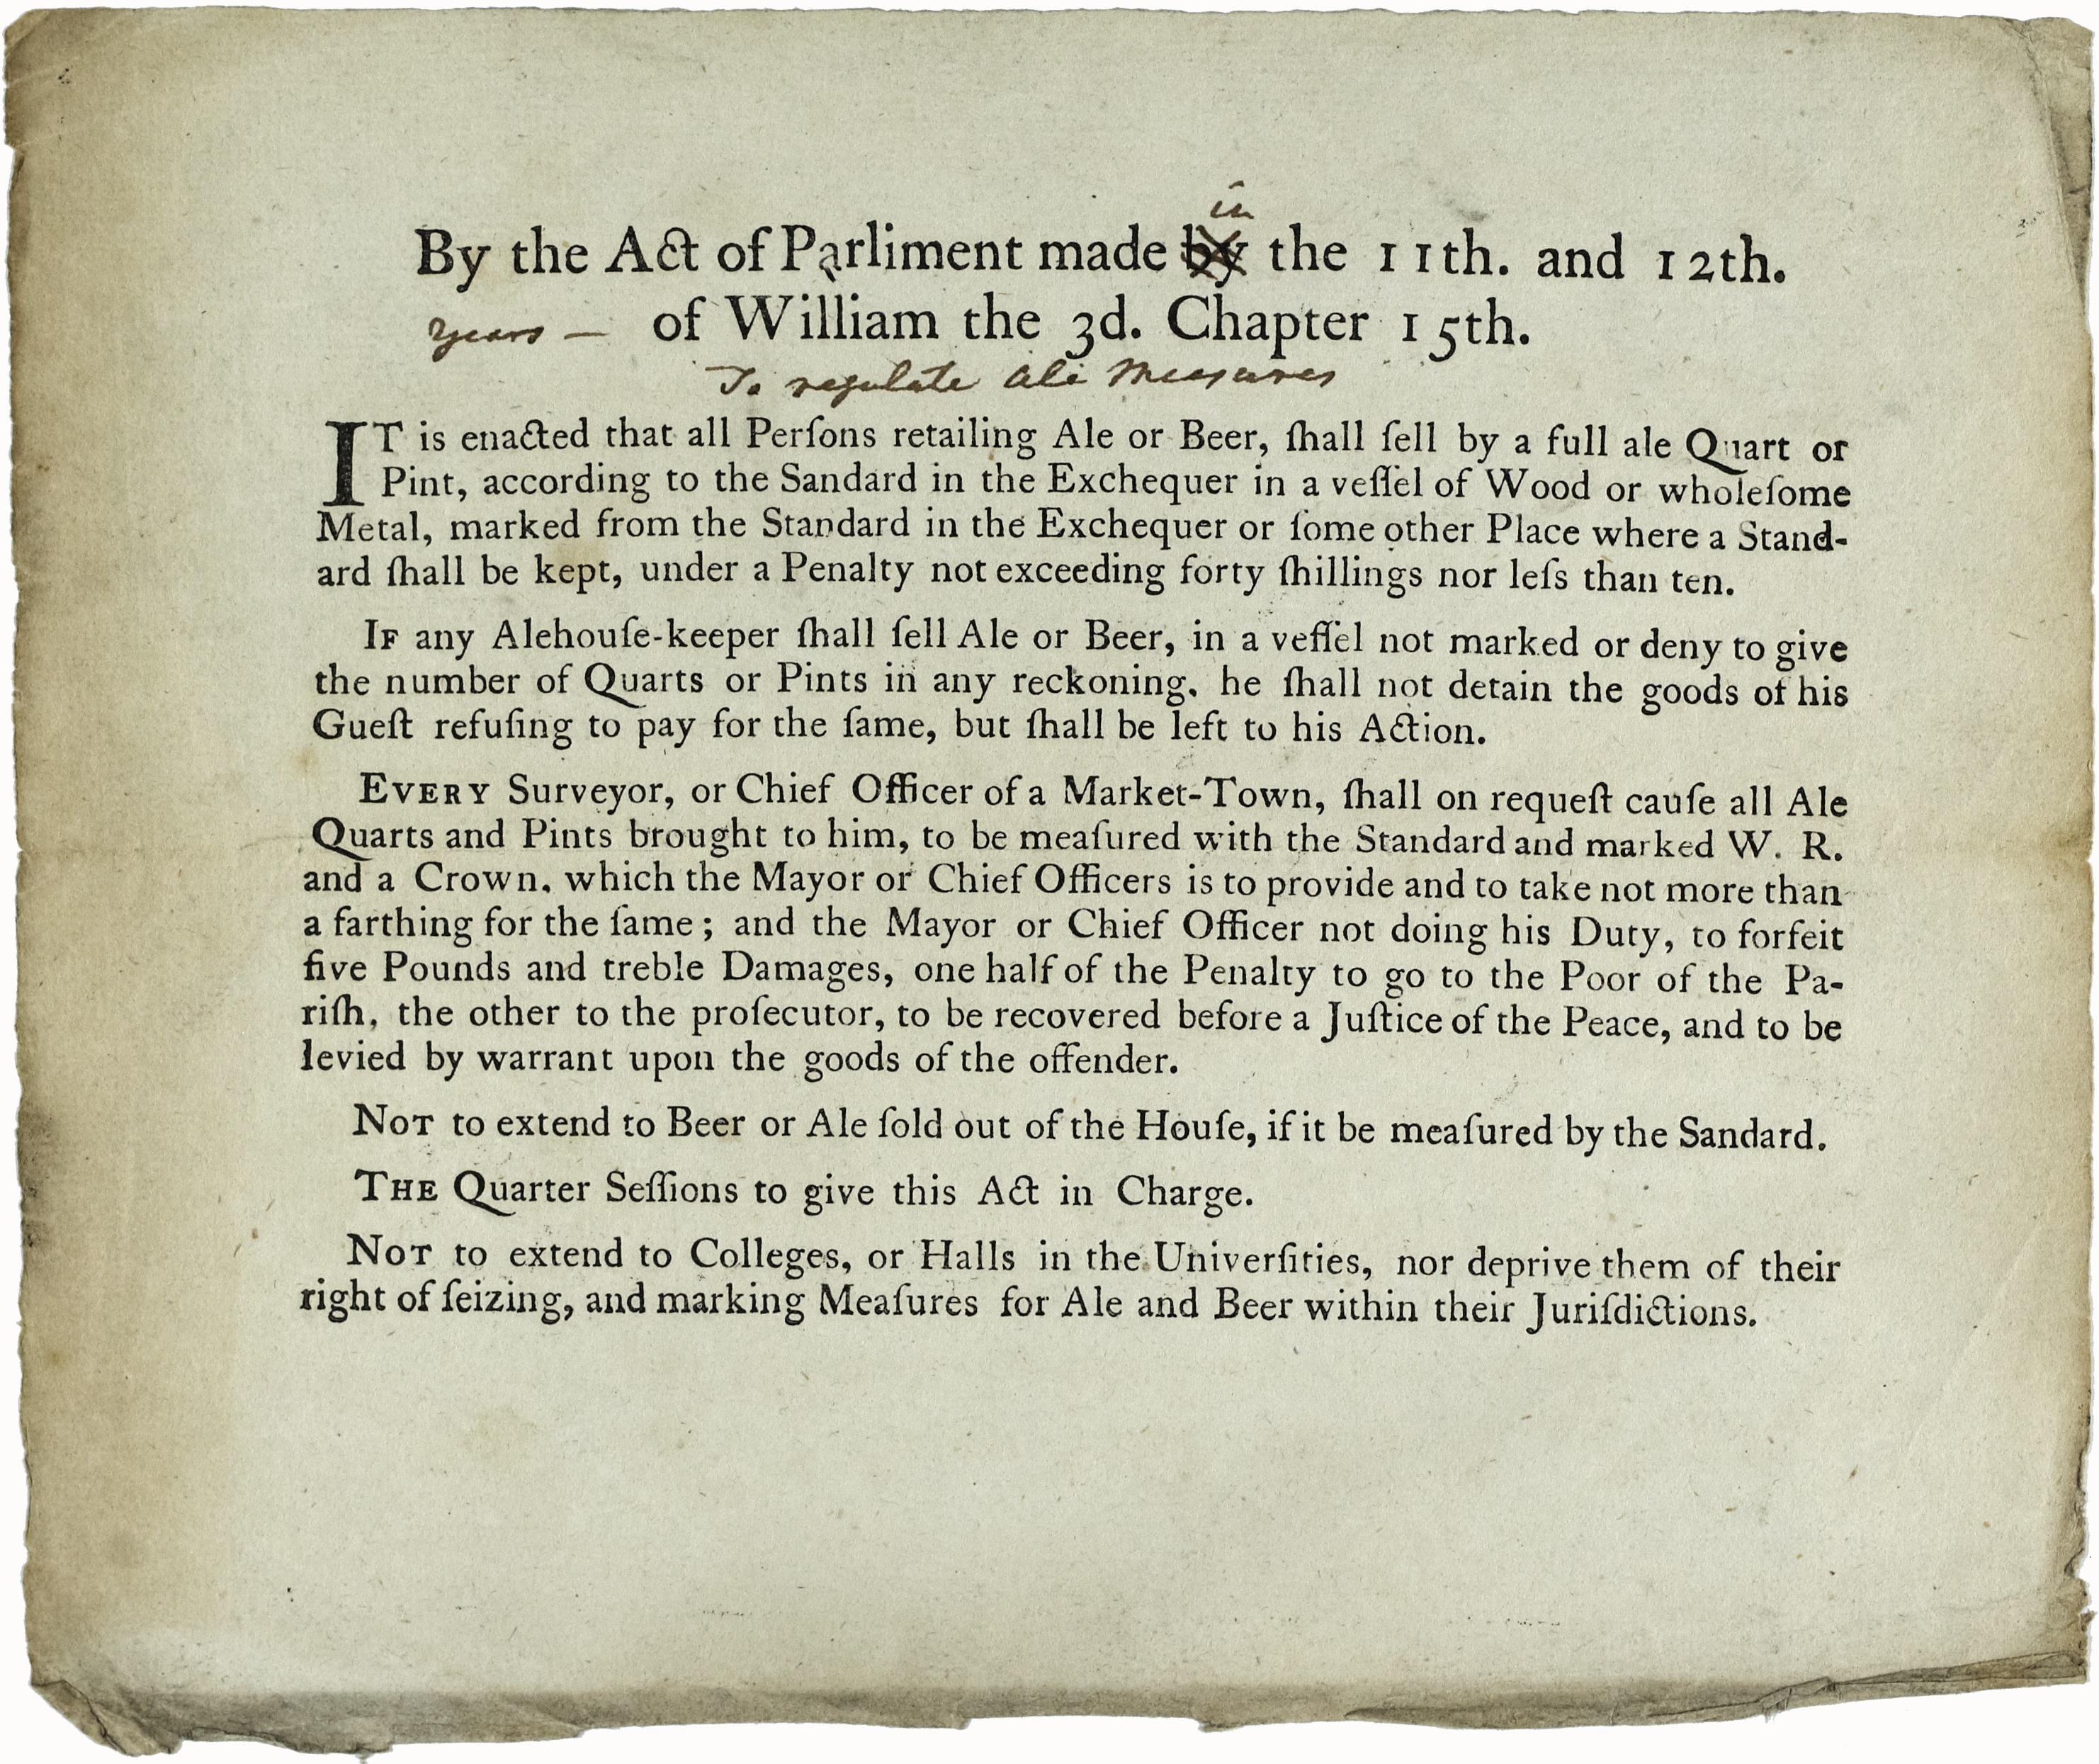 in
By the Act of Parliment made by the 11th. and 12th.
years — of William the 3d. Chapter 15th.
To regulate Ale Measures
IT is enacted that all Perſons retailing Ale or Beer, ſhall ſell by a full ale Quart or
Pint, according to the Sandard in the Exchequer in a veſſel of Wood or wholeſome
Metal, marked from the Standard in the Exchequer or ſome other Place where a Stand-
ard ſhall be kept, under a Penalty not exceeding forty ſhillings nor leſs than ten.
IF any Alehouſe-keeper ſhall ſell Ale or Beer, in a veſſel not marked or deny to give
the number of Quarts or Pints in any reckoning, he ſhall not detain the goods of his
Gueſt refuſing to pay for the ſame, but ſhall be left to his Action.
EVERY Surveyor, or Chief Officer of a Market-Town, ſhall on requeſt cauſe all Ale
Quarts and Pints brought to him, to be meaſured with the Standard and marked W. R.
and a Crown, which the Mayor or Chief Officers is to provide and to take not more than
a farthing for the ſame; and the Mayor or Chief Officer not doing his Duty, to forfeit
five Pounds and treble Damages, one half of the Penalty to go to the Poor of the Pa-
riſh, the other to the proſecutor, to be recovered before a Juſtice of the Peace, and to be
levied by warrant upon the goods of the offender.
NOT to extend to Beer or Ale ſold out of the Houſe, if it be meaſured by the Sandard.
THE Quarter Seſſions to give this Act in Charge.
NOT to extend to Colleges, or Halls in the Univerſities, nor deprive them of their
right of ſeizing, and marking Meaſures for Ale and Beer within their Juriſdictions.